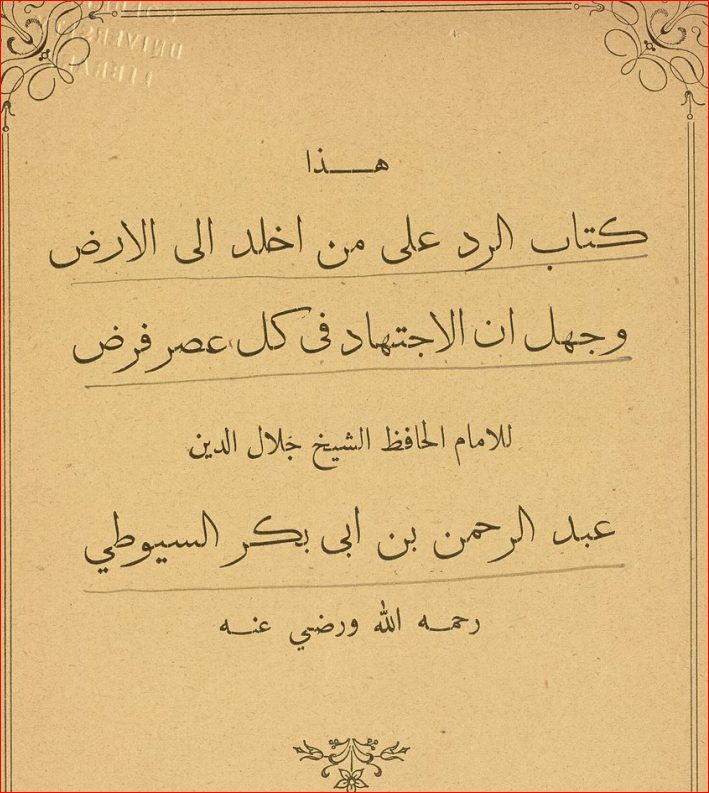 هـــذا
كتاب الرد على من اخلد الى الارض
وجهل ان الاجتهاد فى كل عصر فرض
للامام الحافظ الشيخ جلال الدين
عبد الرحمن بن ابى بكر السيوطي
رحمـه الله ورضي عنـه